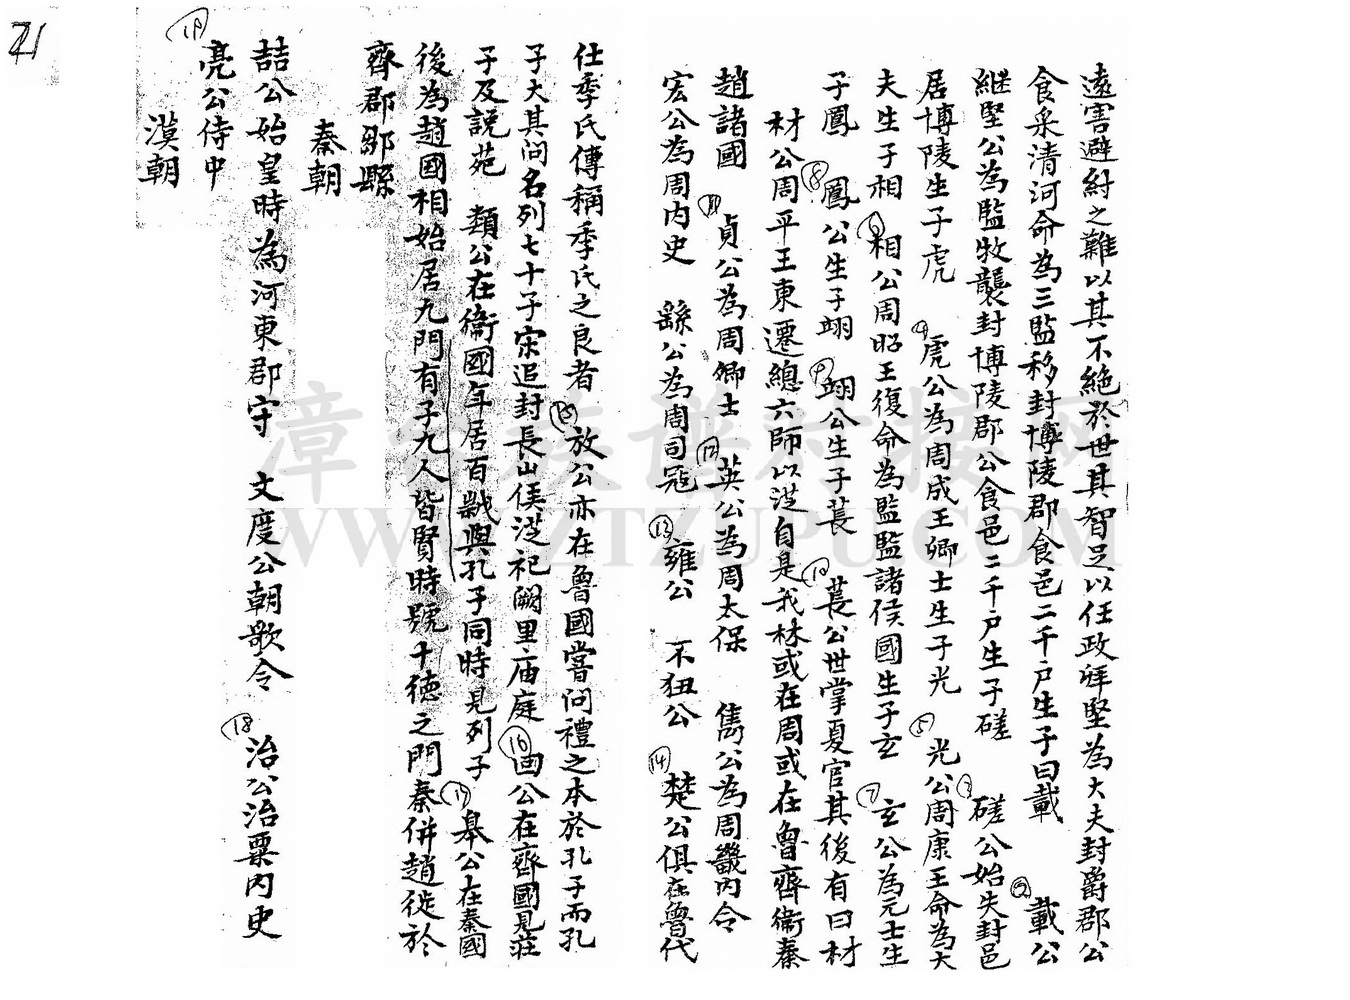 遠害避紂之難以其不絕於世其智足以任政拜堅為大夫封爵郡公
食采清河命為三監移封博陵郡食邑二千戶生子曰載 ② 載公
継堅公為監牧襲封博陵郡公食邑二千戶生子磋 ③ 磋公始失封邑
居博陵生子虎 ④ 虎公為周成王卿士生子光 ⑤ 光公周康王命為大
夫生子相 ⑥ 相公周昭王復命為監監諸侯國生子玄 ⑦ 玄公為元士生
子鳳 ⑧ 鳳公生子翊 ⑨ 翊公生子萇 ⑩ 萇公世掌夏官其後有曰材
材公周平王東遷總六師以從自是我林或在周或在魯齊衞秦
趙諸國 ⑪ 貞公為周卿士 ⑫ 英公為周太保 雋公為周畿內令
宏公為周内史 繇公為周司冦 ⑬ 雍公 不狃公 ⑭ 楚公俱在魯代
仕季氏傳稱季氏之良者 ⑮ 放公亦在魯國嘗問禮之本於孔子而孔
子大其問名列七十子宋追封長山侯從祀闕里庙庭 ⑯ 囬公在齊國見莊
子及說苑 類公在衞國年居百歲與孔子同時見列子 ⑰ 皋公在秦國
後為趙國相始居九門有子九人皆賢時號十德之門秦併趙徙於
齊郡鄒縣
秦朝
喆公始皇時為河東郡守 文度公朝歌令 ⑱ 治公治粟內史
⑲
亮公侍中
漠朝
21
漳州族谱对接网
WWW.ZTZUPU.COM